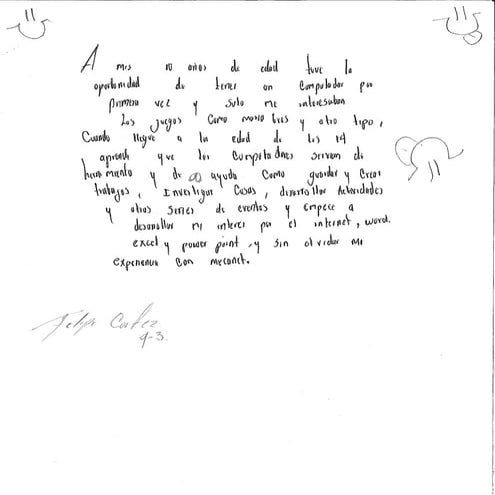 A mis 10 años de edad tuve la
oportunidad de tener un computador por
primera vez y solo me interesaban
Los juegos como mario bros y otro tipo,
Cuando llegue a la edad de los 14
aprendi que los computadores servian de
herramienta y de ayuda como guardar y crear
trabajos, Investigar Cosas, desarrollar Actividades
y otras series de eventos y empece a
desarrollar mi interes por el internet, word.
excel y power point, y sin olvidar mi
experiencia con mecanet.
Felipe Cortez
9-3.